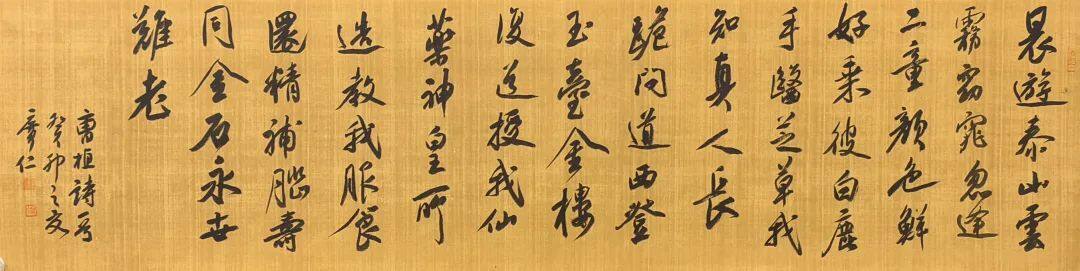 晨遊泰山雲
霧窈窕忽逢
二童顏色鮮
好乘彼白鹿
手醫芝草我
知真人長
跪问道西登
玉臺金樓
復道授我仙
藥神皇所
造教我服食
還精補腦壽
同金石永世
難老
曹植詩
癸卯之
仁